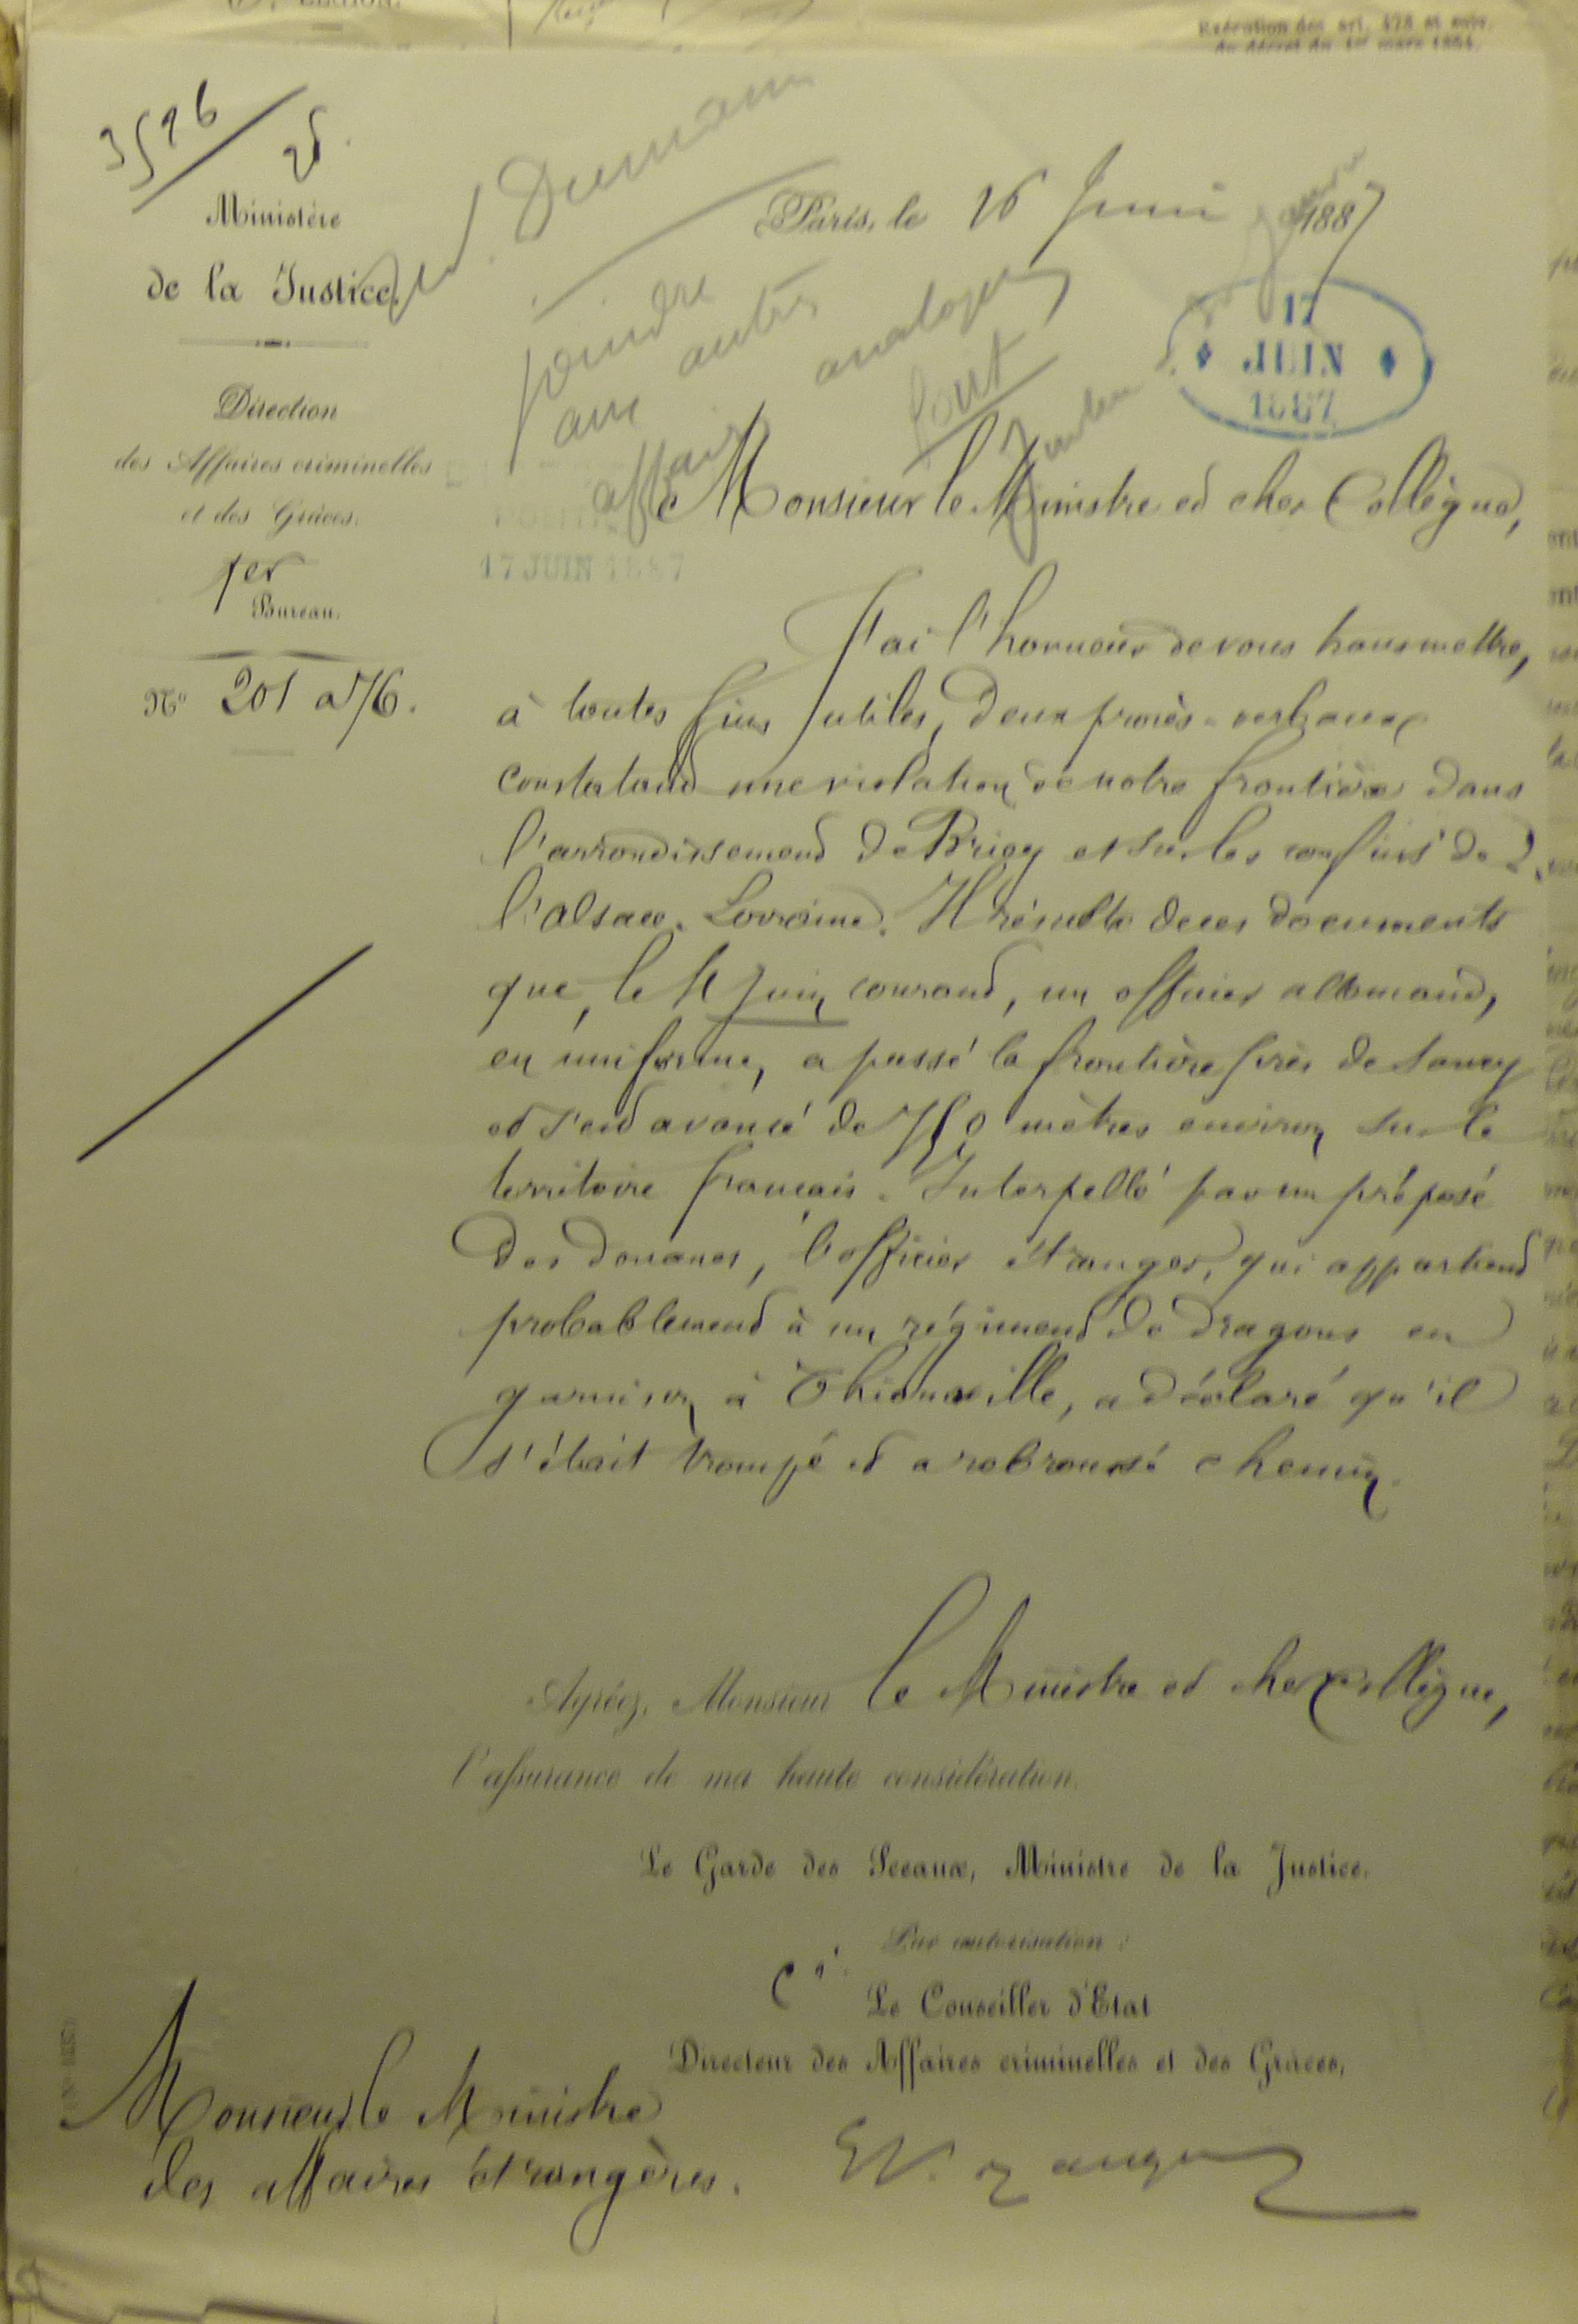 Exécution des art. 478 et suiv.
du décret du 1er mars 1854.
3516
25.
Ministère
de la Justice.
Direction
des Affaires criminelles
et des Grâces.
1er
Bureau.
No 201 a 76.
Dumaine
joindre
aux autres
affaires analogues
Paris, le 16 Juin 1887
17
JUIN
1887
17 JUIN 1887
Monsieur le Ministre et cher Collègue,
J'ai l'honneur de vous transmettre,
à toutes fins utiles, deux procès-verbaux
constatant une violation de notre frontière dans
l'arrondissement de Briey et sur les confins de
l'Alsace-Lorraine. Il résulte de ces documents
que, le 4 Juin courant, un officier allemand,
en uniforme, a passé la frontière près de Sancy
et s'est avancé de 750 mètres environ sur le
territoire français. Interpellé par un préposé
des douanes, l'officier étranger, qui appartient
probablement à un régiment de dragons en
garnison à Thionville, a déclaré qu'il
s'était trompé et a rebroussé chemin.
Agréez, Monsieur le Ministre et cher Collègue,
l'assurance de ma haute considération.
Le Garde des Sceaux, Ministre de la Justice.
Par autorisation :
Le Conseiller d'Etat
Directeur des Affaires criminelles et des Grâces,
Monsieur le Ministre
des affaires étrangères.